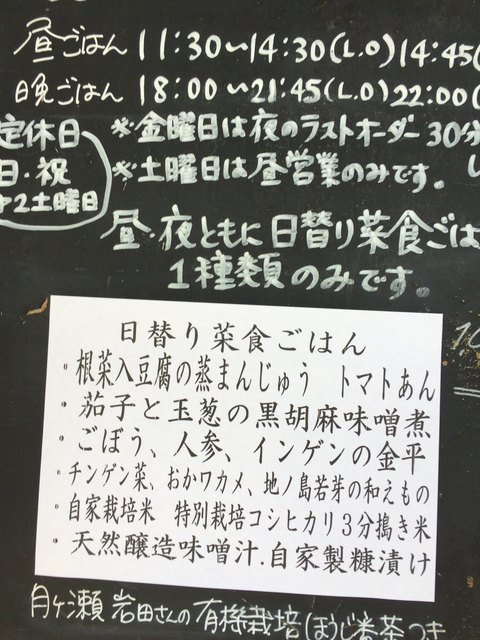 昼ごはん 11:30〜14:30(L.O)14:45(
晩ごはん 18:00〜21:45(L.O)22:00(
定休日
日・祝
2土曜日
※金曜日は夜のラストオーダー30分
※土曜日は昼営業のみです。
昼・夜ともに日替り菜食ごは
1種類のみです。
日替り菜食ごはん
・根菜入豆腐の蒸まんじゅう トマトあん
・茄子と玉葱の黒胡麻味噌煮
・ごぼう、人参、インゲンの金平
・チンゲン菜、おかワカメ、地ノ島若芽の和えもの
・自家栽培米 特別栽培コシヒカリ3分搗き米
・天然醸造味噌汁.自家製糠漬け
月ヶ瀬 岩田さんの有機栽培ほうじ米茶つき